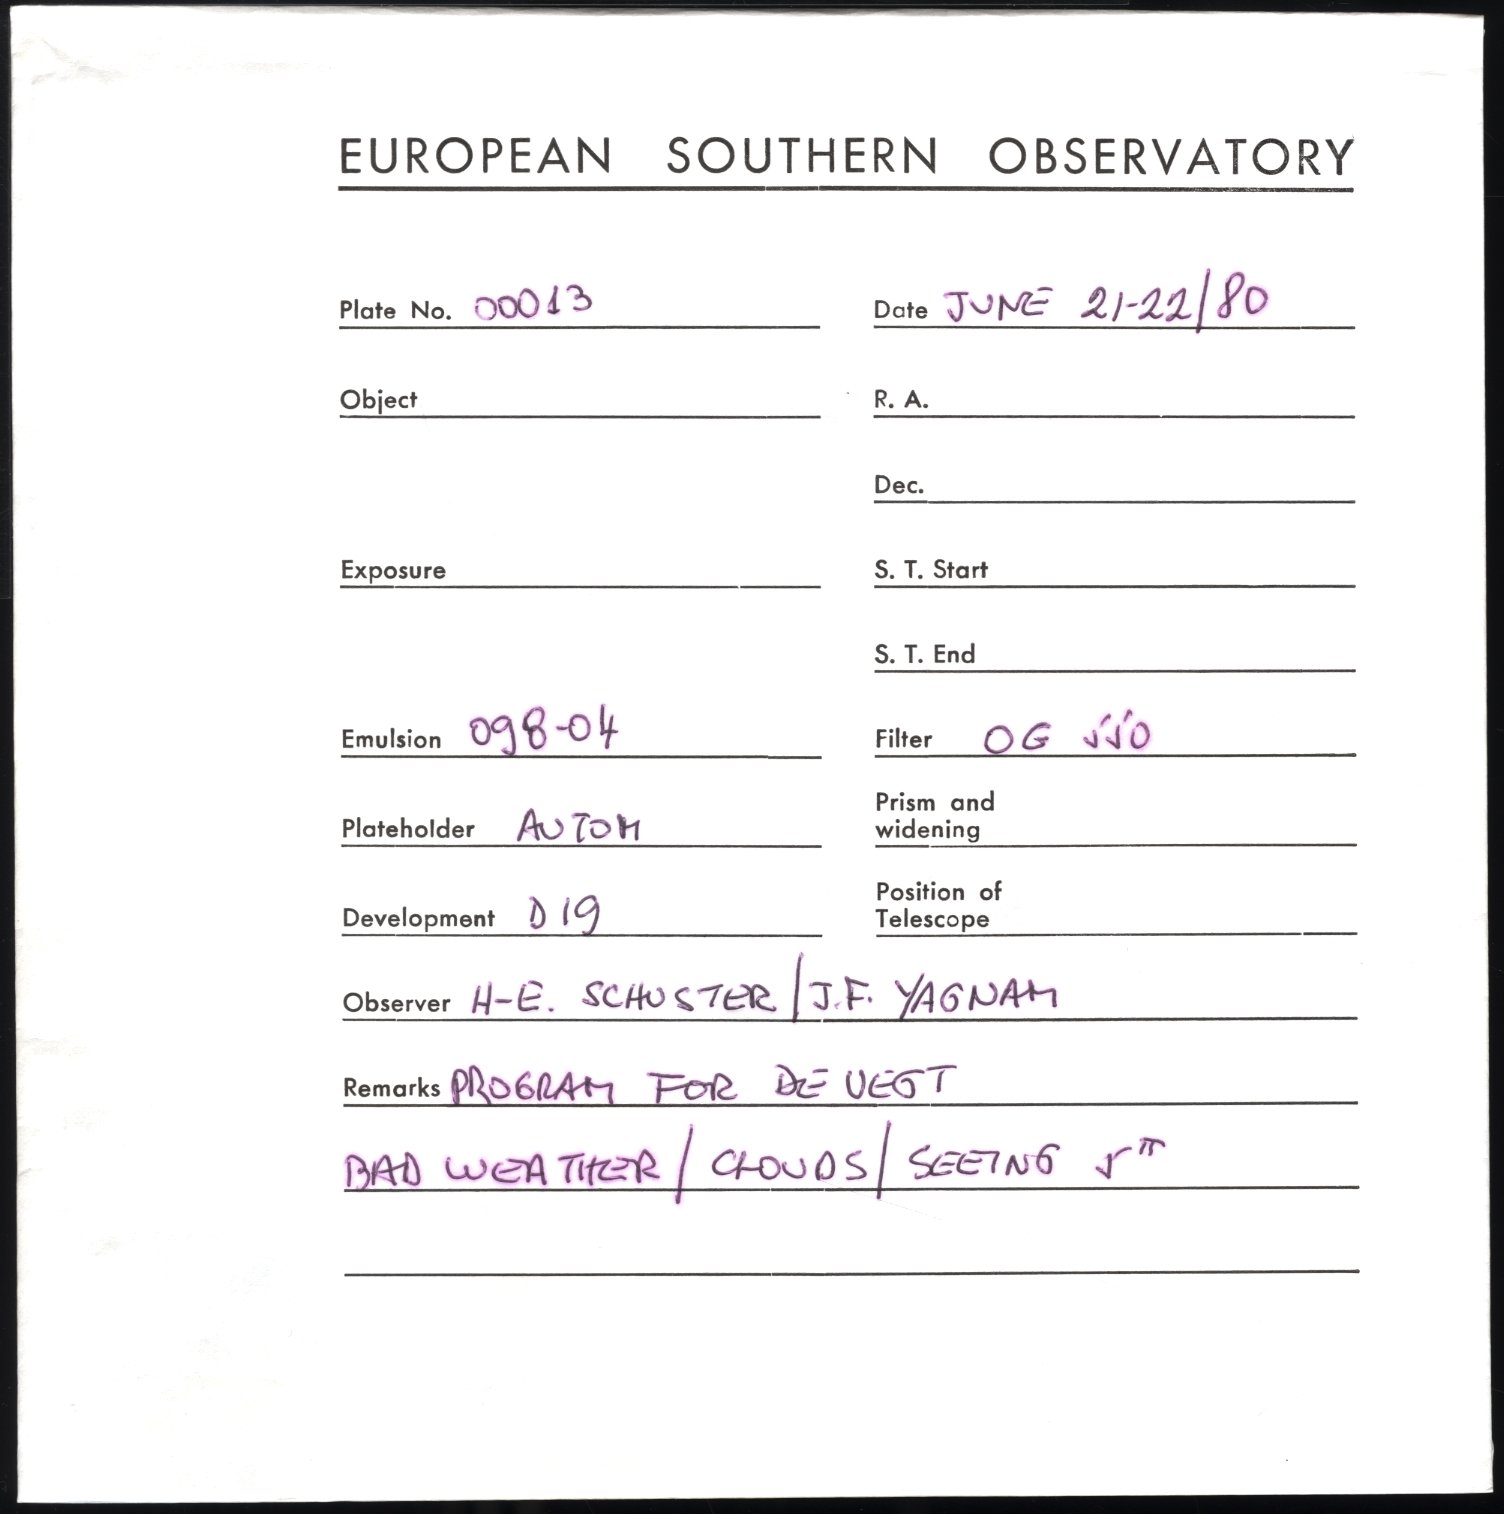 EUROPEAN SOUTHERN OBSERVATORY
Plate No. 00013 Date JUNE 21-22/80
Object R. A.
Dec.
Exposure S. T. Start
S. T. End
Emulsion 098-04 Filter OG 550
Plateholder AUTOM Prism and
widening
Development D19 Position of
Telescope
Observer H-E. SCHUSTER/J.F. YAGNAM
Remarks PROGRAM FOR DE VEGT
BAD WEATHER/CLOUDS/SEEING 5"